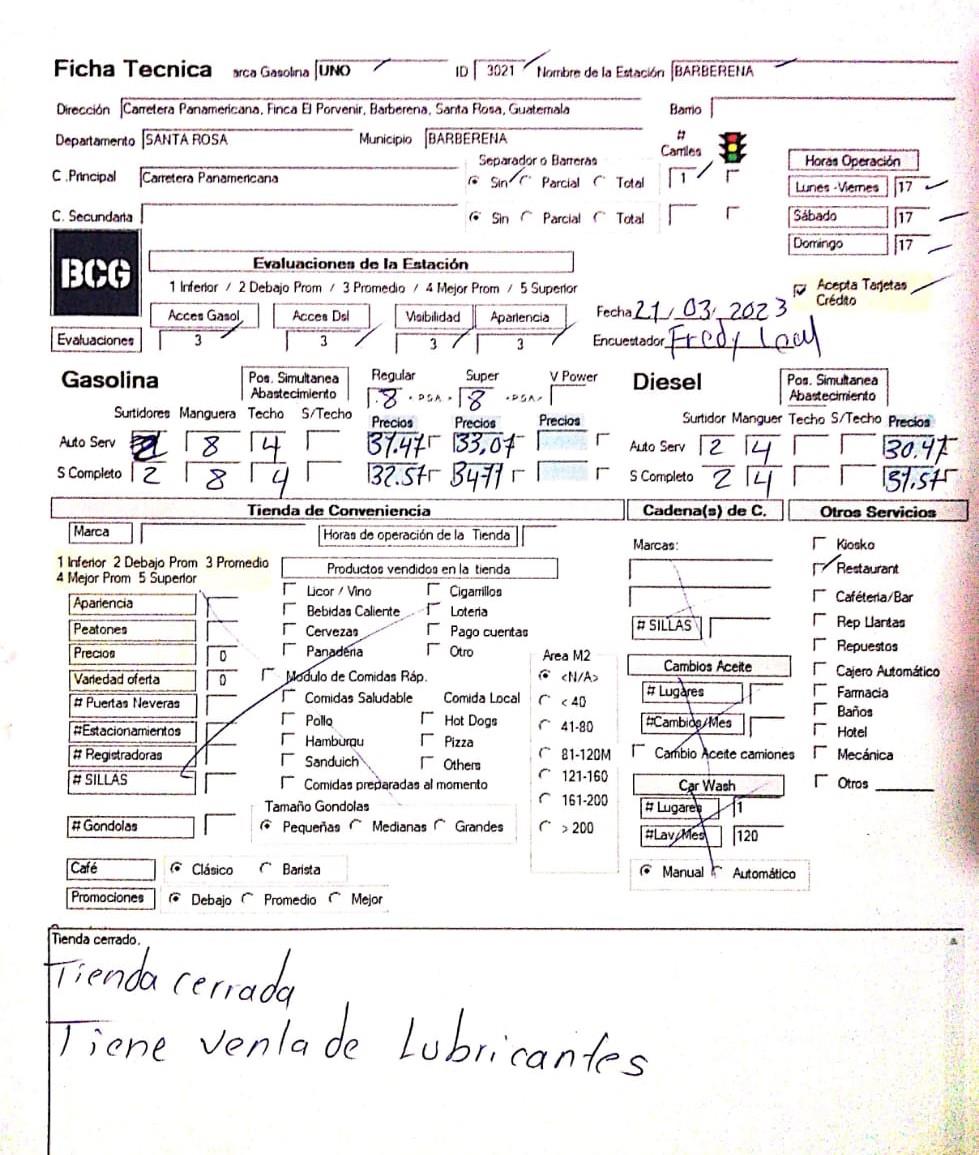 Ficha Tecnica arca Gasolina UNO ID 3021 Nombre de la Estación BARBERENA
Dirección Carretera Panamericana, Finca El Porvenir, Barberena, Santa Rosa, Guatemala Barrio
Departamento SANTA ROSA Municipio BARBERENA # Carriles
C .Principal Carretera Panamericana Separador o Barreras Sin Parcial Total 1
Horas Operación
Lunes -Viernes 17
C. Secundaria Sin Parcial Total
Sábado 17
Domingo 17
BCG
Evaluaciones de la Estación
1 Inferior / 2 Debajo Prom / 3 Promedio / 4 Mejor Prom / 5 Superior
Acepta Tarjetas Crédito
Acces Gasol Acces Dsl Visibilidad Apariencia
Fecha 21/03/2023
Evaluaciones 3 3 3 3
Encuestador Fredy Leal
Gasolina Pos. Simultanea Abastecimiento Regular Super V Power
8 8
Surtidores Manguera Techo S/Techo Precios Precios Precios
Auto Serv 8 4 33.07
S Completo 2 8 4 32.57 34.71
Diesel Pos. Simultanea Abastecimiento
Surtidor Manguer Techo S/Techo Precios
Auto Serv 2 4 30.47
S Completo 2 4 31.57
Tienda de Conveniencia Cadena(s) de C. Otros Servicios
Marca Horas de operación de la Tienda
1 Inferior 2 Debajo Prom 3 Promedio
4 Mejor Prom 5 Superior
Apariencia
Peatones
Precios 0
Variedad oferta 0
# Puertas Neveras
#Estacionamientos
# Registradoras
# SILLAS
# Gondolas
Productos vendidos en la tienda
Licor / Vino Cigarrillos
Bebidas Caliente Loteria
Cervezas Pago cuentas
Panadería Otro
Modulo de Comidas Ráp.
Comidas Saludable Comida Local
Pollo Hot Dogs
Hamburgu Pizza
Sanduich Others
Comidas preparadas al momento
Tamaño Gondolas
Pequeñas Medianas Grandes
Area M2
<N/A>
< 40
41-80
81-120M
121-160
161-200
> 200
Café Clásico Barista
Promociones Debajo Promedio Mejor
Marcas:
# SILLAS
Cambios Aceite
# Lugares
#Cambios/Mes
Cambio Aceite camiones
Car Wash
# Lugares 1
#Lav/Mes 120
Manual Automático
Kiosko
Restaurant
Caféteria/Bar
Rep Llantas
Repuestos
Cajero Automático
Farmacia
Baños
Hotel
Mecánica
Otros
Tienda cerrado.
Tienda cerrada
Tiene venta de Lubricantes